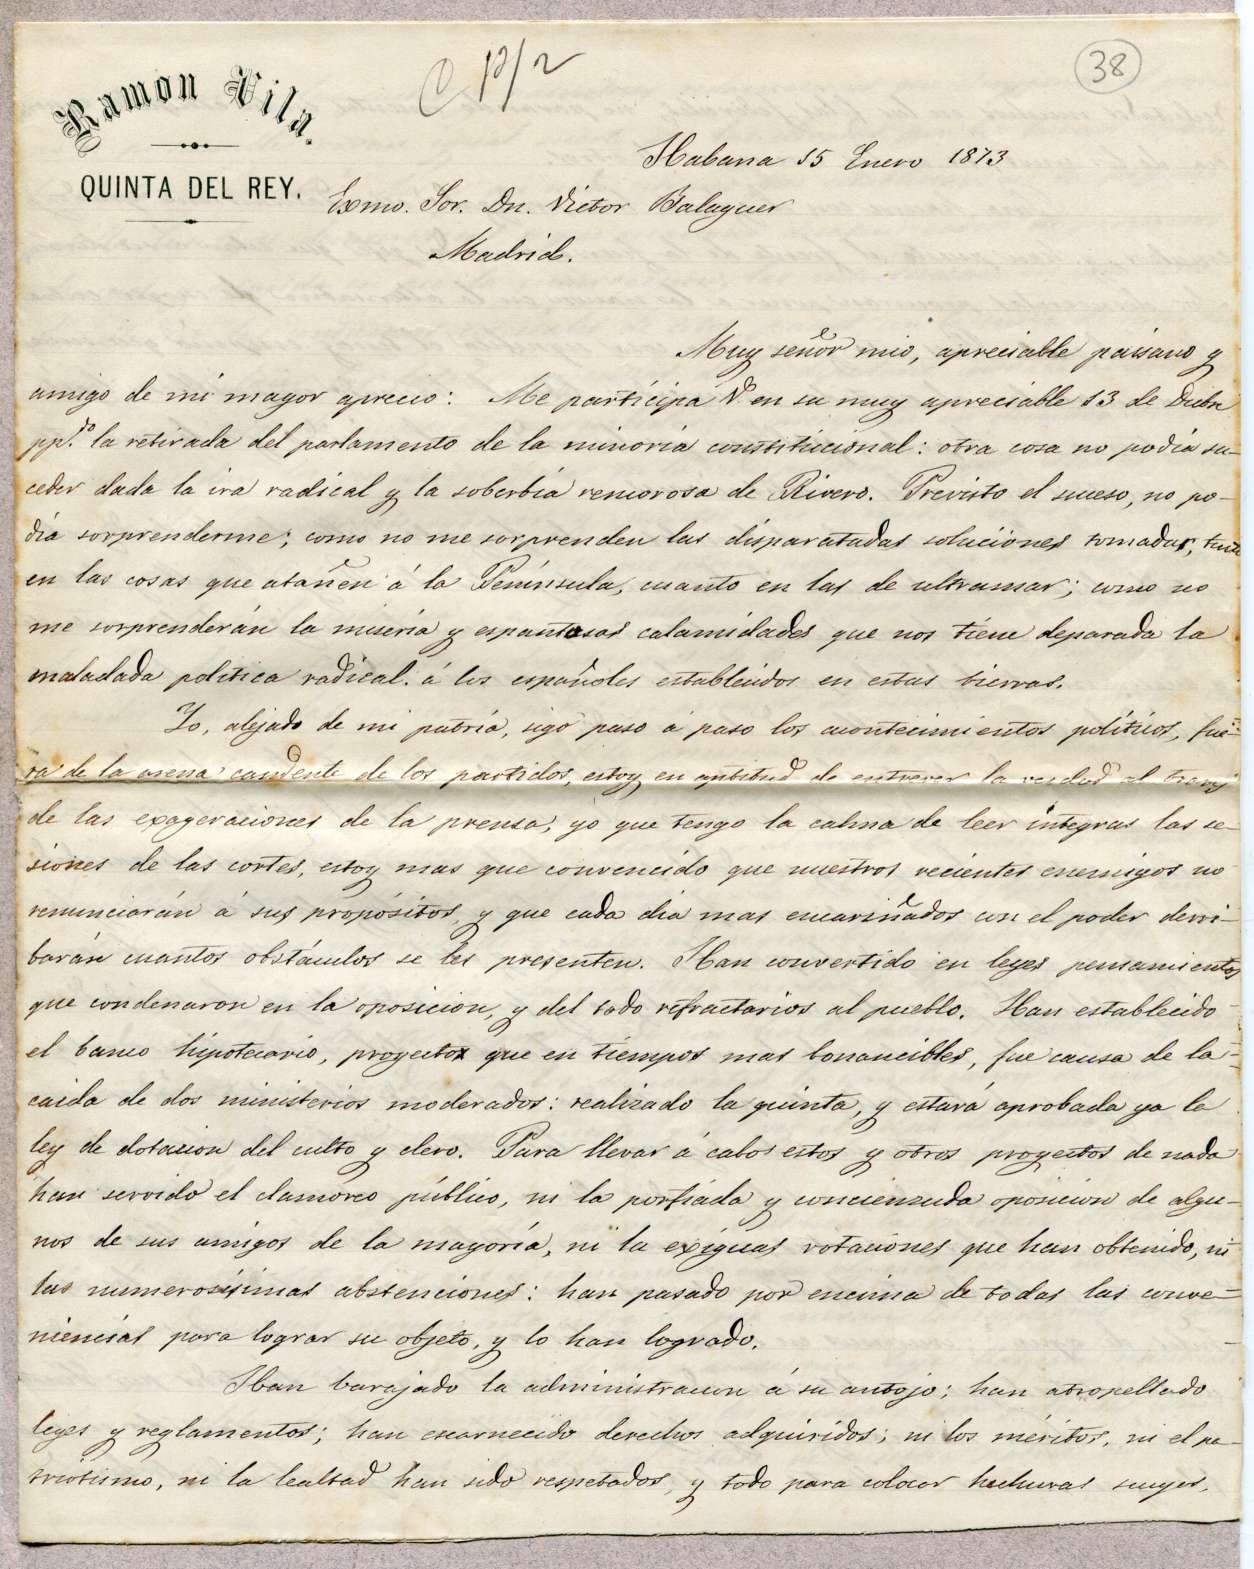 38
Ramon Vila.
QUINTA DEL REY.
Habana 15 Enero 1873
Exmo. Sor. Dn. Victor Balaguer
Madrid.
Muy señor mio, apreciable paisano y
amigo de mi mayor aprecio: Me participa V. en su muy apreciable 13 de Dicbre
pp.do la retirada del parlamento de la minoria constitucional: otra cosa no podia su-
ceder dada la ira radical y la soberbia rencorosa de Rivero. Previsto el suceso, no po-
dia sorprenderme; como no me sorprenden las disparatadas soluciones tomadas, tanto
en las cosas que atañen á la Península, cuanto en las de ultramar; como no
me sorprenderán la miseria y espantosas calamidades que nos tiene deparada la
maladada politica radical. á los españoles establecidos en estas tierras.
Yo, alejado de mi patria, sigo paso á paso los acontecimientos politicos, fue-
ra de la arena candente de los partidos, estoy en aptitud de entrever la verdad al traves
de las exageraciones de la prensa, yo que tengo la calma de leer integras las se-
siones de las cortes, estoy mas que convencido que nuestros recientes enemigos no
renunciarán á sus propósitos, y que cada dia mas encariñados con el poder derri-
barán cuantos obstáculos se les presenten. Han convertido en leyes pensamientos
que condenaron en la oposicion, y del todo refractarios al pueblo. Han establecido
el banco hipotecario, proyecto que en tiempos mas bonancibles, fue causa de la
caida de dos ministerios moderados: realizado la quinta, y estará aprobada ya la
ley de dotacion del culto y clero. Para llevar á cabo estos y otros proyectos de nada
han servido el clamoreo público, ni la porfiada y concienzuda oposicion de algu-
nos de sus amigos de la mayoría, ni la exiguas votaciones que han obtenido, ni
las numerosísimas abstenciones: han pasado por encima de todas las conve-
niencias para lograr su objeto, y lo han logrado.
Han barajado la administracion á su antojo; han atropellado
leyes y reglamentos; han escarnecido derechos adquiridos; ni los méritos, ni el pa-
triotismo, ni la lealtad han sido respetados, y todo para colocar hechuras suyas,